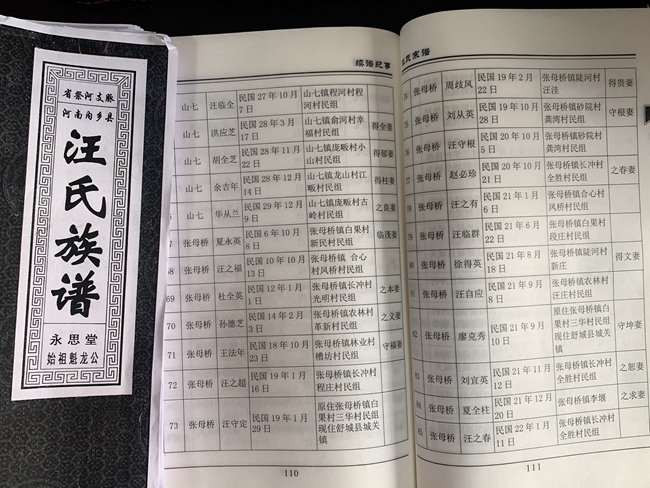 省祭河文脉
河南内乡县
汪氏族谱
永思堂
始祖魁龙公
续谱纪事
山七 汪临全 民国27年10月7日 山七镇程河村程河村民组
山七 洪应芝 民国28年3月17日 山七镇俞河村幸福村民组 得全妻
山七 胡全芝 民国28年11月22日 山七镇庞畈村小山村民组 得郁妻
山七 余吉年 民国28年12月14日 山七镇龙山村江畈村民组 得柱妻
山七 华从兰 民国29年12月9日 山七镇庞畈村古岭村民组 之良妻
张母桥 夏永英 民国6年10月8日 张母桥镇白果村新民村民组 临茂妻
68 张母桥 汪之福 民国10年10月13日 张母桥镇 合心村凤桥村民组
69 张母桥 杜全英 民国12年1月1日 张母桥镇长冲村光明村民组 之本妻
70 张母桥 孙德芝 民国14年2月3日 张母桥镇农林村革新村民组 之义妻
71 张母桥 王法年 民国18年10月23日 张母桥镇林业村槽坊村民组 守福妻
72 张母桥 汪之超 民国19年1月16日 张母桥镇长冲村程庄村民组
73 张母桥 汪守定 民国19年1月29日 原住张母桥镇白果村三华村民组现住舒城县城关镇
110
汪氏宗谱
74 张母桥 周歧凤 民国19年2月22日 张母桥镇陡河村汪洼 得贵妻
75 张母桥 刘从英 民国19年10月28日 张母桥镇砂院村龚湾村民组 守根妻
76 张母桥 汪守根 民国20年10月5日 张母桥镇砂院村龚湾村民组
77 张母桥 赵必珍 民国20年10月21日 张母桥镇长冲村全胜村民组 之春妻
78 张母桥 汪之有 民国21年1月6日 张母桥镇合心村凤桥村民组
79 张母桥 汪临群 民国21年6月22日 张母桥镇白果村段庄村民组
80 张母桥 徐得英 民国21年8月18日 张母桥镇陡河村新庄 得文妻
81 张母桥 汪自应 民国21年9月8日 张母桥镇农林村汪庄村民组
82 张母桥 廖克秀 民国21年9月10日 原住张母桥镇白果村三华村民组现住舒城县城关镇 守坤妻
83 张母桥 刘宜英 民国21年11月12日 张母桥镇长冲村全胜村民组 之恕妻
84 张母桥 夏全柱 民国21年12月20日 张母桥镇李堰村民组 之求妻
85 张母桥 汪之春 民国22年1月11日 张母桥镇长冲村全胜村民组
111